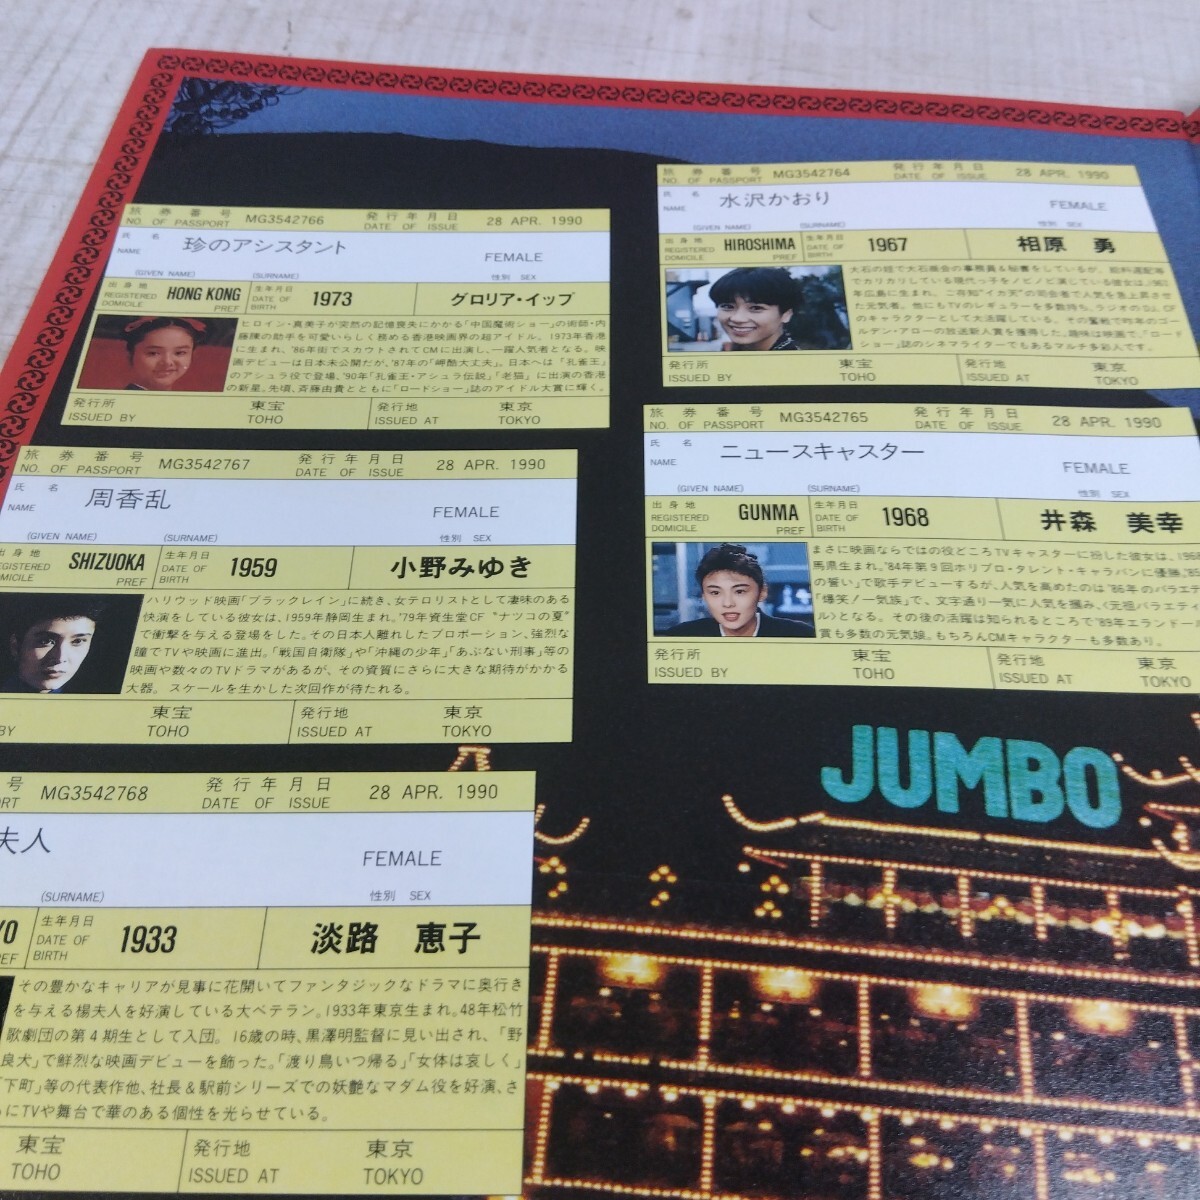 旅券番号 MG3542766 発行年月日 28 APR. 1990
NO. OF PASSPORT DATE OF ISSUE
氏名 珍のアシスタント FEMALE
NAME
(GIVEN NAME) (SURNAME) 性別 SEX
出身地 HONG KONG 生年月日 1973 グロリア・イップ
REGISTERED DATE OF
DOMICILE PREF BIRTH
ヒロイン・真美子が突然の記憶喪失にかかる「中国魔術ショー」の術師・内
藤陳の助手を可愛いらしく務める香港映画界の超アイドル。1973年香港
に生まれ、'86年街でスカウトされてCMに出演し、一躍人気者となる。映
画デビューは日本未公開だが、'87年の「岬酷大丈夫」。日本へは「孔雀王」
のアシュラ役で登場、'90年「孔雀王・アシュラ伝説」「老猫」に出演の香港
の新星。先頃、斉藤由貴とともに「ロードショー」誌のアイドル大賞に輝く。
発行所 東宝 発行地 東京
ISSUED BY TOHO ISSUED AT TOKYO
旅券番号 MG3542767 発行年月日 28 APR. 1990
NO. OF PASSPORT DATE OF ISSUE
氏名 周香乱 FEMALE
NAME
(GIVEN NAME) (SURNAME) 性別 SEX
出身地 SHIZUOKA 生年月日 1959 小野みゆき
REGISTERED DATE OF
DOMICILE PREF BIRTH
ハリウッド映画「ブラックレイン」に続き、女テロリストとして凄味のある
快演をしている彼女は、1959年静岡生まれ。'79年資生堂CF “ナツコの夏”
で衝撃を与える登場をした。その日本人離れしたプロポーション、強烈な
瞳でTVや映画に進出。「戦国自衛隊」や「沖縄の少年」「あぶない刑事」等の
映画や数々のTVドラマがあるが、その資質にさらに大きな期待がかかる
大器。スケールを生かした次回作が待たれる。
BY 東宝 発行地 東京
TOHO ISSUED AT TOKYO
号 MG3542768 発行年月日 28 APR. 1990
PORT DATE OF ISSUE
夫人 FEMALE
(SURNAME) 性別 SEX
YO 生年月日 1933 淡路 恵子
PREF DATE OF
BIRTH
その豊かなキャリアが見事に花開いてファンタジックなドラマに奥行き
を与える楊夫人を好演している大ベテラン。1933年東京生まれ。48年松竹
歌劇団の第4期生として入団。16歳の時、黒澤明監督に見い出され、「野
良犬」で鮮烈な映画デビューを飾った。「渡り鳥いつ帰る」「女体は哀しく」
「下町」等の代表作他、社長&駅前シリーズでの妖艶なマダム役を好演、さ
らにTVや舞台で華のある個性を光らせている。
東宝 発行地 東京
TOHO ISSUED AT TOKYO
旅券番号 MG3542764 発行年月日 28 APR. 1990
NO. OF PASSPORT DATE OF ISSUE
氏名 水沢かおり FEMALE
NAME
(GIVEN NAME) (SURNAME) 性別 SEX
出身地 HIROSHIMA 生年月日 1967 相原 勇
REGISTERED DATE OF
DOMICILE PREF BIRTH
大石の姪で大石商会の事務員&秘書をしているが、給料遅配等
でカリカリしている現代っ子をノビノビ演じている彼女は、1967
年広島に生まれ、ご存知“イカ天”の司会者で人気を急上昇させ
た元気者。他にもTVのレギュラーを多数持ち、ラジオのDJ、CF
のキャラクターとして大活躍している。その奮戦で昨年のゴー
ルデン・アローの放送新人賞を獲得した。趣味は映画で「ロード
ショー」誌のシネマライターでもあるマルチな彩人です
発行所 東宝 発行地 東京
ISSUED BY TOHO ISSUED AT TOKYO
旅券番号 MG3542765 発行年月日 28 APR. 1990
NO. OF PASSPORT DATE OF ISSUE
氏名 ニュースキャスター FEMALE
NAME
(GIVEN NAME) (SURNAME) 性別 SEX
出身地 GUNMA 生年月日 1968 井森 美幸
REGISTERED DATE OF
DOMICILE PREF BIRTH
まさに映画ならではの役どころTVキャスターに扮した彼女は、1968
馬県生まれ。'84年第9回ホリプロ・タレント・キャラバンに優勝。'85
の誓い」で歌手デビューするが、人気を高めたのは'86年のバラエテ
「爆笑!一気族」で、文字通り一気に人気を獲み、〈元祖バラエティ
ル〉となる。その後の活躍は知られるところで'89年エランドール
賞も多数の元気娘。もちろんCMキャラクターも多数あり。
発行所 東宝 発行地 東京
ISSUED BY TOHO ISSUED AT TOKYO
JUMBO